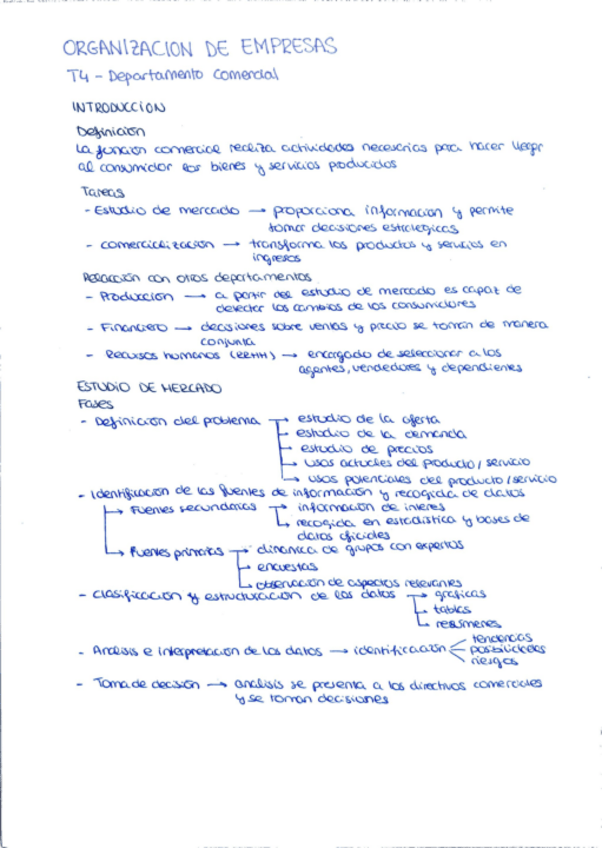 ORGANIZACION DE EMPRESAS
T4 - Departamento Comercial
INTRODUCCION
Definicion
La función comercial realiza actividades necesarias para hacer llegar
al consumidor los bienes y servicios producidos
Tareas
- Estudio de mercado → proporciona información y permite
tomar decisiones estratégicas
- comercialización → transforma los productos y servicios en
ingresos
Relacción con otros departamentos
- Producción → a partir del estudio de mercado es capaz de
detectar los cambios de los consumidores
- Financiero → decisiones sobre ventas y precio se toman de manera
conjunta
- Recursos humanos (RRHH) → encargado de seleccionar a los
agentes, vendedores y dependientes
ESTUDIO DE MERCADO
Fases
- Definición del problema → estudio de la oferta
→ estudio de la demanda
→ estudio de precios
→ usos actuales del producto / servicio
→ usos potenciales del producto / servicio
- Identificación de las fuentes de información y recogida de datos
→ Fuentes secundarias → información de interés
→ recogida en estadística y bases de
datos oficiales
→ Fuentes primarias → dinámica de grupos con expertos
→ encuestas
→ observación de aspectos relevantes
- Clasificación y estructuración de los datos → gráficas
→ tablas
→ resúmenes
- Análisis e Interpretación de los datos → identificación tendencias
posibilidades
riesgos
- Toma de decisión → análisis se presenta a los directivos comerciales
y se toman decisiones